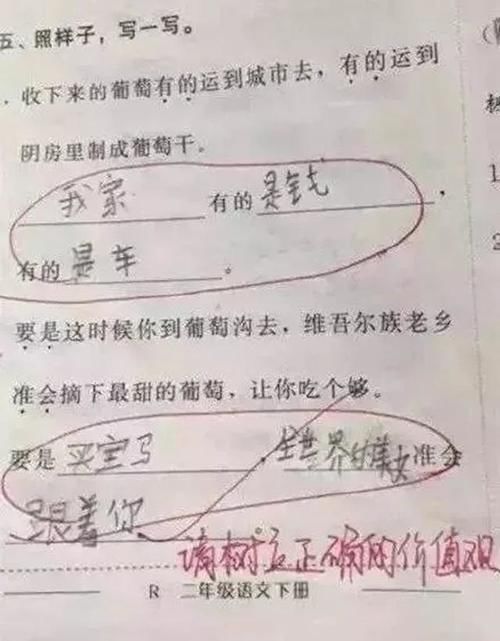 五、照样子，写一写。
收下来的葡萄有的运到城市去，有的运到
阴房里制成葡萄干。
我家有的是钱，
有的是车。
要是这时候你到葡萄沟去，维吾尔族老乡
准会摘下最甜的葡萄，让你吃个够。
要是买宝马，全世界的美女准会
跟着你
请树立正确的价值观
R 二年级语文下册